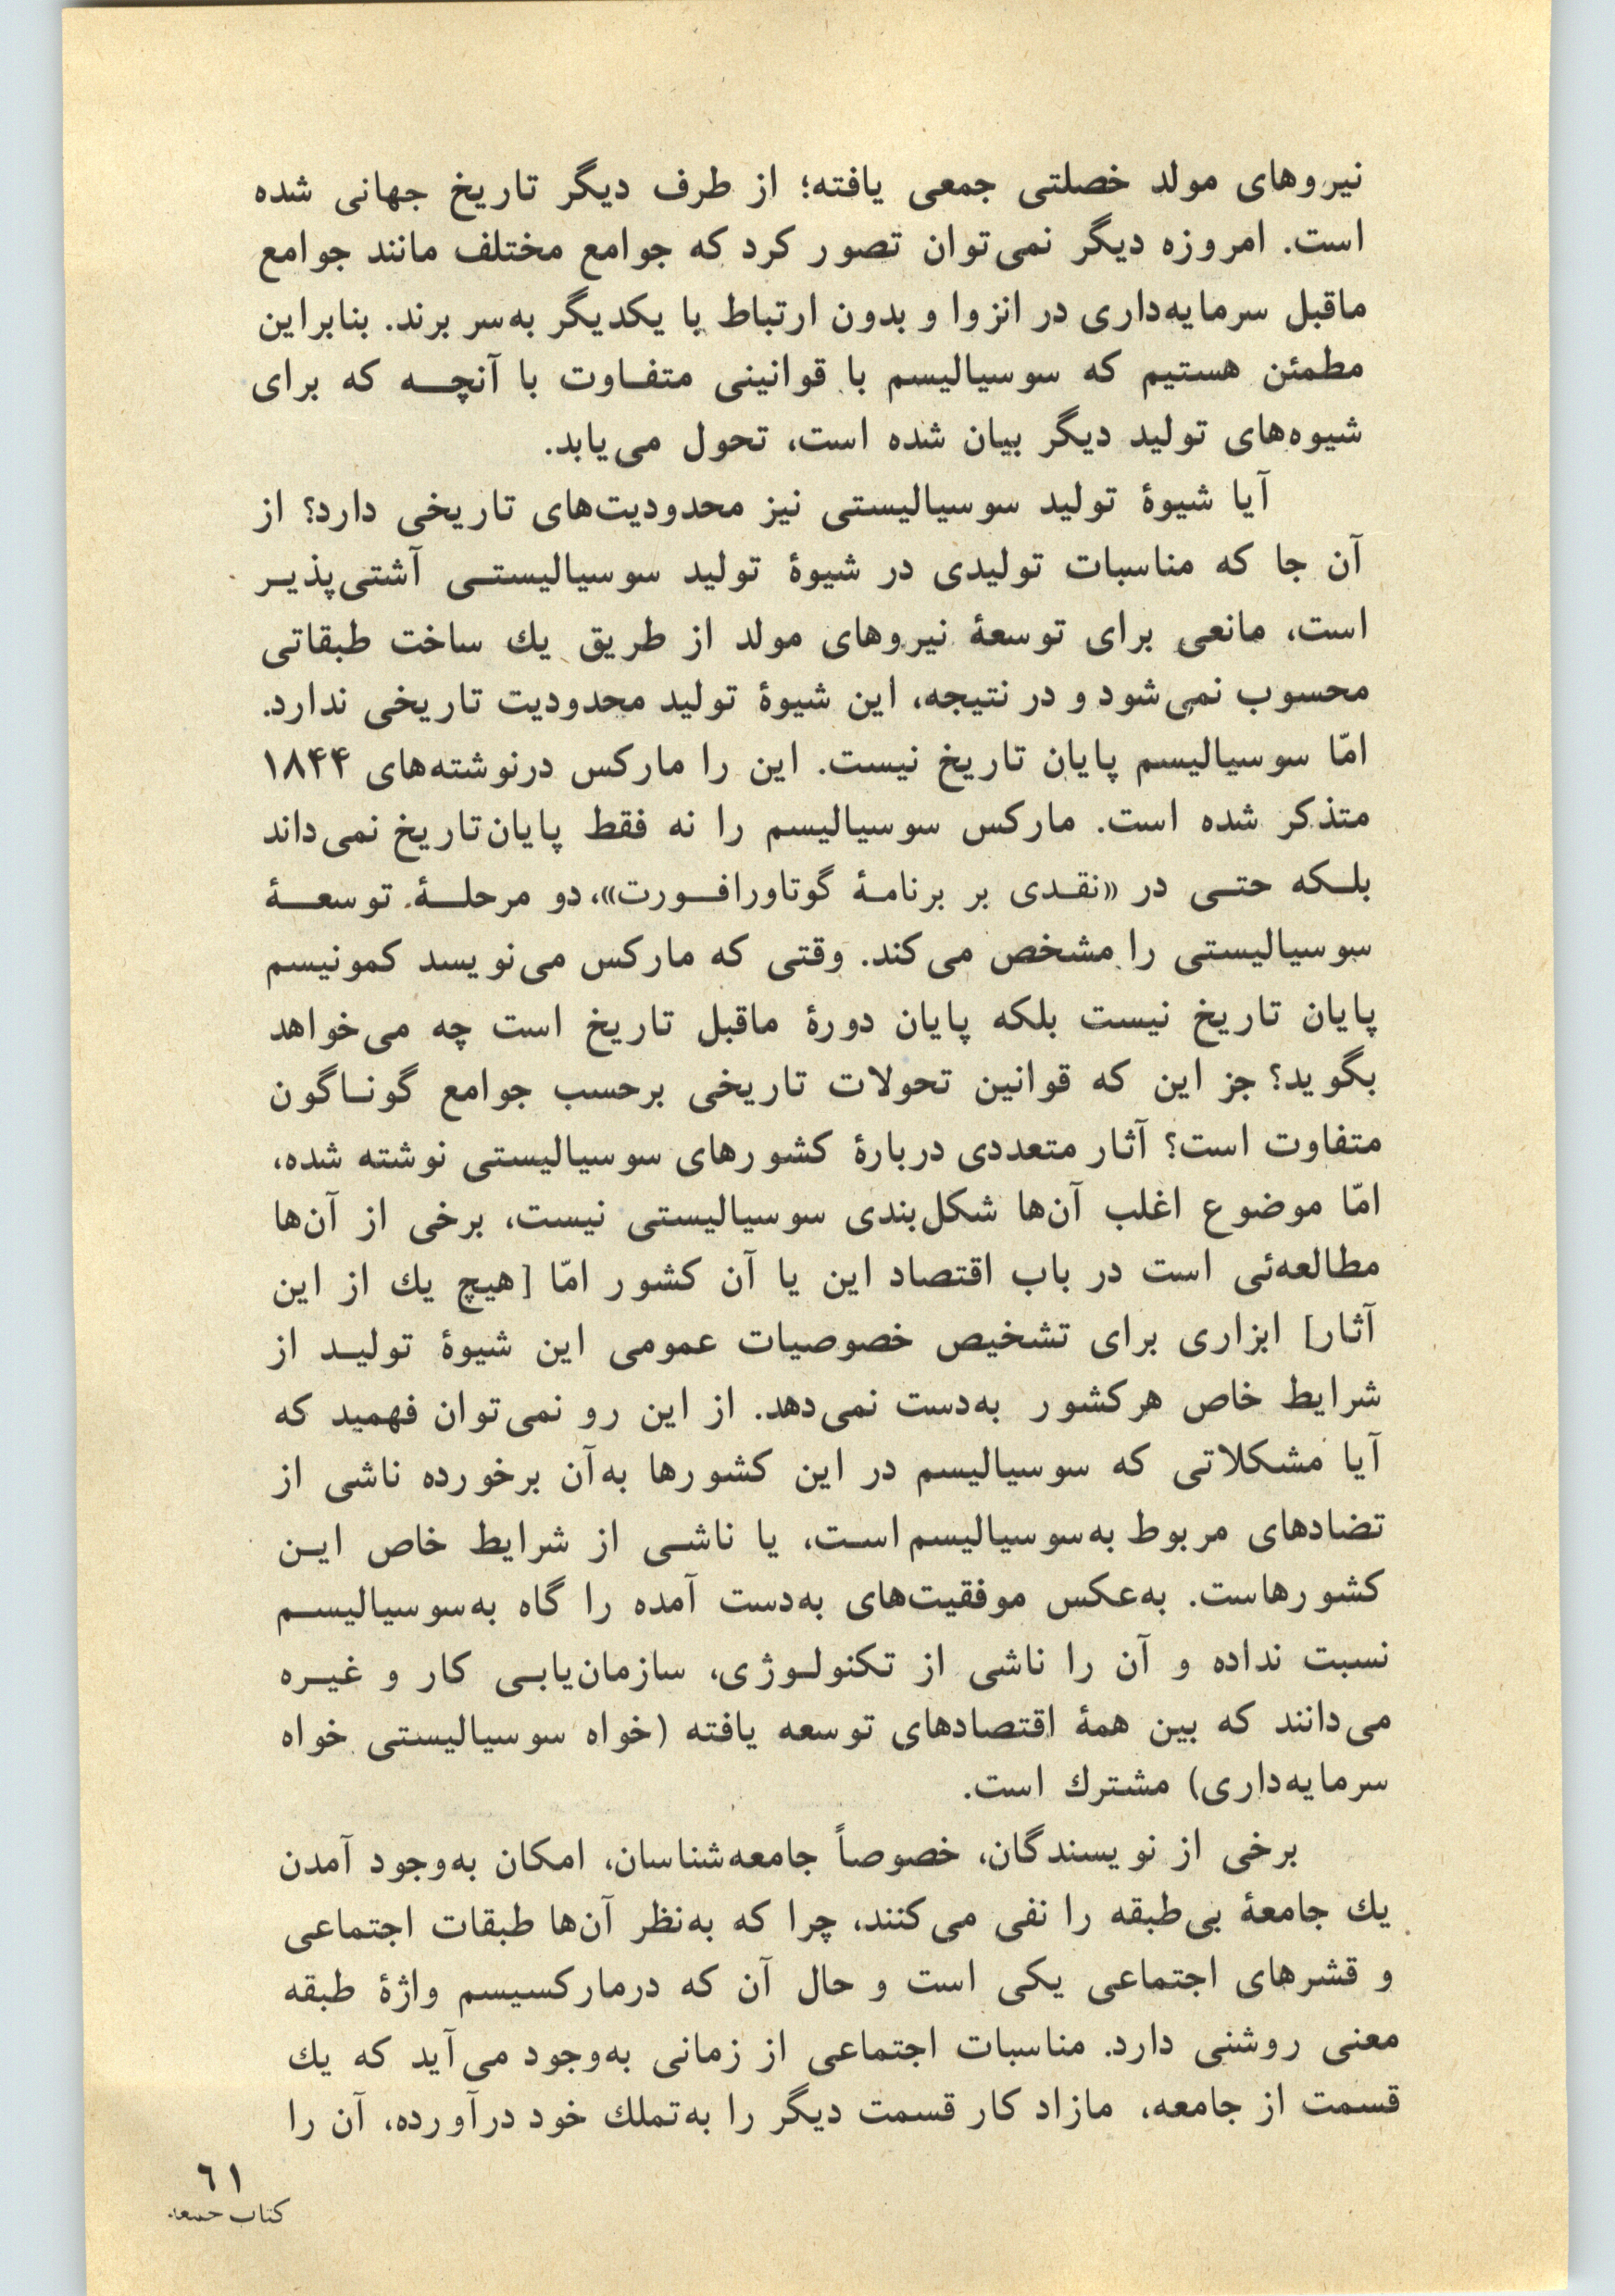 نیروهای مولد خصلتی جمعی یافته؛ از طرف دیگر تاریخ جهانی شده
است. امروزه دیگر نمی‌توان تصور کرد که جوامع مختلف مانند جوامع
ماقبل سرمایه‌داری در انزوا و بدون ارتباط با یکدیگر به‌سر برند. بنابراین
مطمئن هستیم که سوسیالیسم با قوانینی متفاوت با آنچه که برای
شیوه‌های تولید دیگر بیان شده است، تحول می‌یابد.
آیا شیوهٔ تولید سوسیالیستی نیز محدودیت‌های تاریخی دارد؟ از
آن جا که مناسبات تولیدی در شیوهٔ تولید سوسیالیستی آشتی‌پذیر
است، مانعی برای توسعهٔ نیروهای مولد از طریق یك ساخت طبقاتی
محسوب نمی‌شود و در نتیجه، این شیوهٔ تولید محدودیت تاریخی ندارد.
امّا سوسیالیسم پایان تاریخ نیست. این را مارکس درنوشته‌های ۱۸۴۴
متذکر شده است. مارکس سوسیالیسم را نه فقط پایان‌تاریخ نمی‌داند
بلکه حتی در «نقدی بر برنامهٔ گوتاورافورت»، دو مرحلهٔ توسعهٔ
سوسیالیستی را مشخص می‌کند. وقتی که مارکس می‌نویسد کمونیسم
پایان تاریخ نیست بلکه پایان دورهٔ ماقبل تاریخ است چه می‌خواهد
بگوید؟ جز این که قوانین تحولات تاریخی برحسب جوامع گوناگون
متفاوت است؟ آثار متعددی دربارهٔ کشورهای سوسیالیستی نوشته شده،
امّا موضوع اغلب آن‌ها شکل‌بندی سوسیالیستی نیست، برخی از آن‌ها
مطالعه‌ئی است در باب اقتصاد این یا آن کشور امّا [هیچ یك از این
آثار] ابزاری برای تشخیص خصوصیات عمومی این شیوهٔ تولید از
شرایط خاص هرکشور به‌دست نمی‌دهد. از این رو نمی‌توان فهمید که
آیا مشکلاتی که سوسیالیسم در این کشورها به‌آن برخورده ناشی از
تضادهای مربوط به‌سوسیالیسم است، یا ناشی از شرایط خاص این
کشورهاست. به‌عکس موفقیت‌های به‌دست آمده را گاه به‌سوسیالیسم
نسبت نداده و آن را ناشی از تکنولوژی، سازمان‌یابی کار و غیره
می‌دانند که بین همهٔ اقتصادهای توسعه یافته (خواه سوسیالیستی خواه
سرمایه‌داری) مشترك است.
برخی از نویسندگان، خصوصاً جامعه‌شناسان، امکان به‌وجود آمدن
یك جامعهٔ بی‌طبقه را نفی می‌کنند، چرا که به‌نظر آن‌ها طبقات اجتماعی
و قشرهای اجتماعی یکی است و حال آن که درمارکسیسم واژهٔ طبقه
معنی روشنی دارد. مناسبات اجتماعی از زمانی به‌وجود می‌آید که یك
قسمت از جامعه، مازاد کار قسمت دیگر را به‌تملك خود درآورده، آن را
۶۱
کتاب جمعه